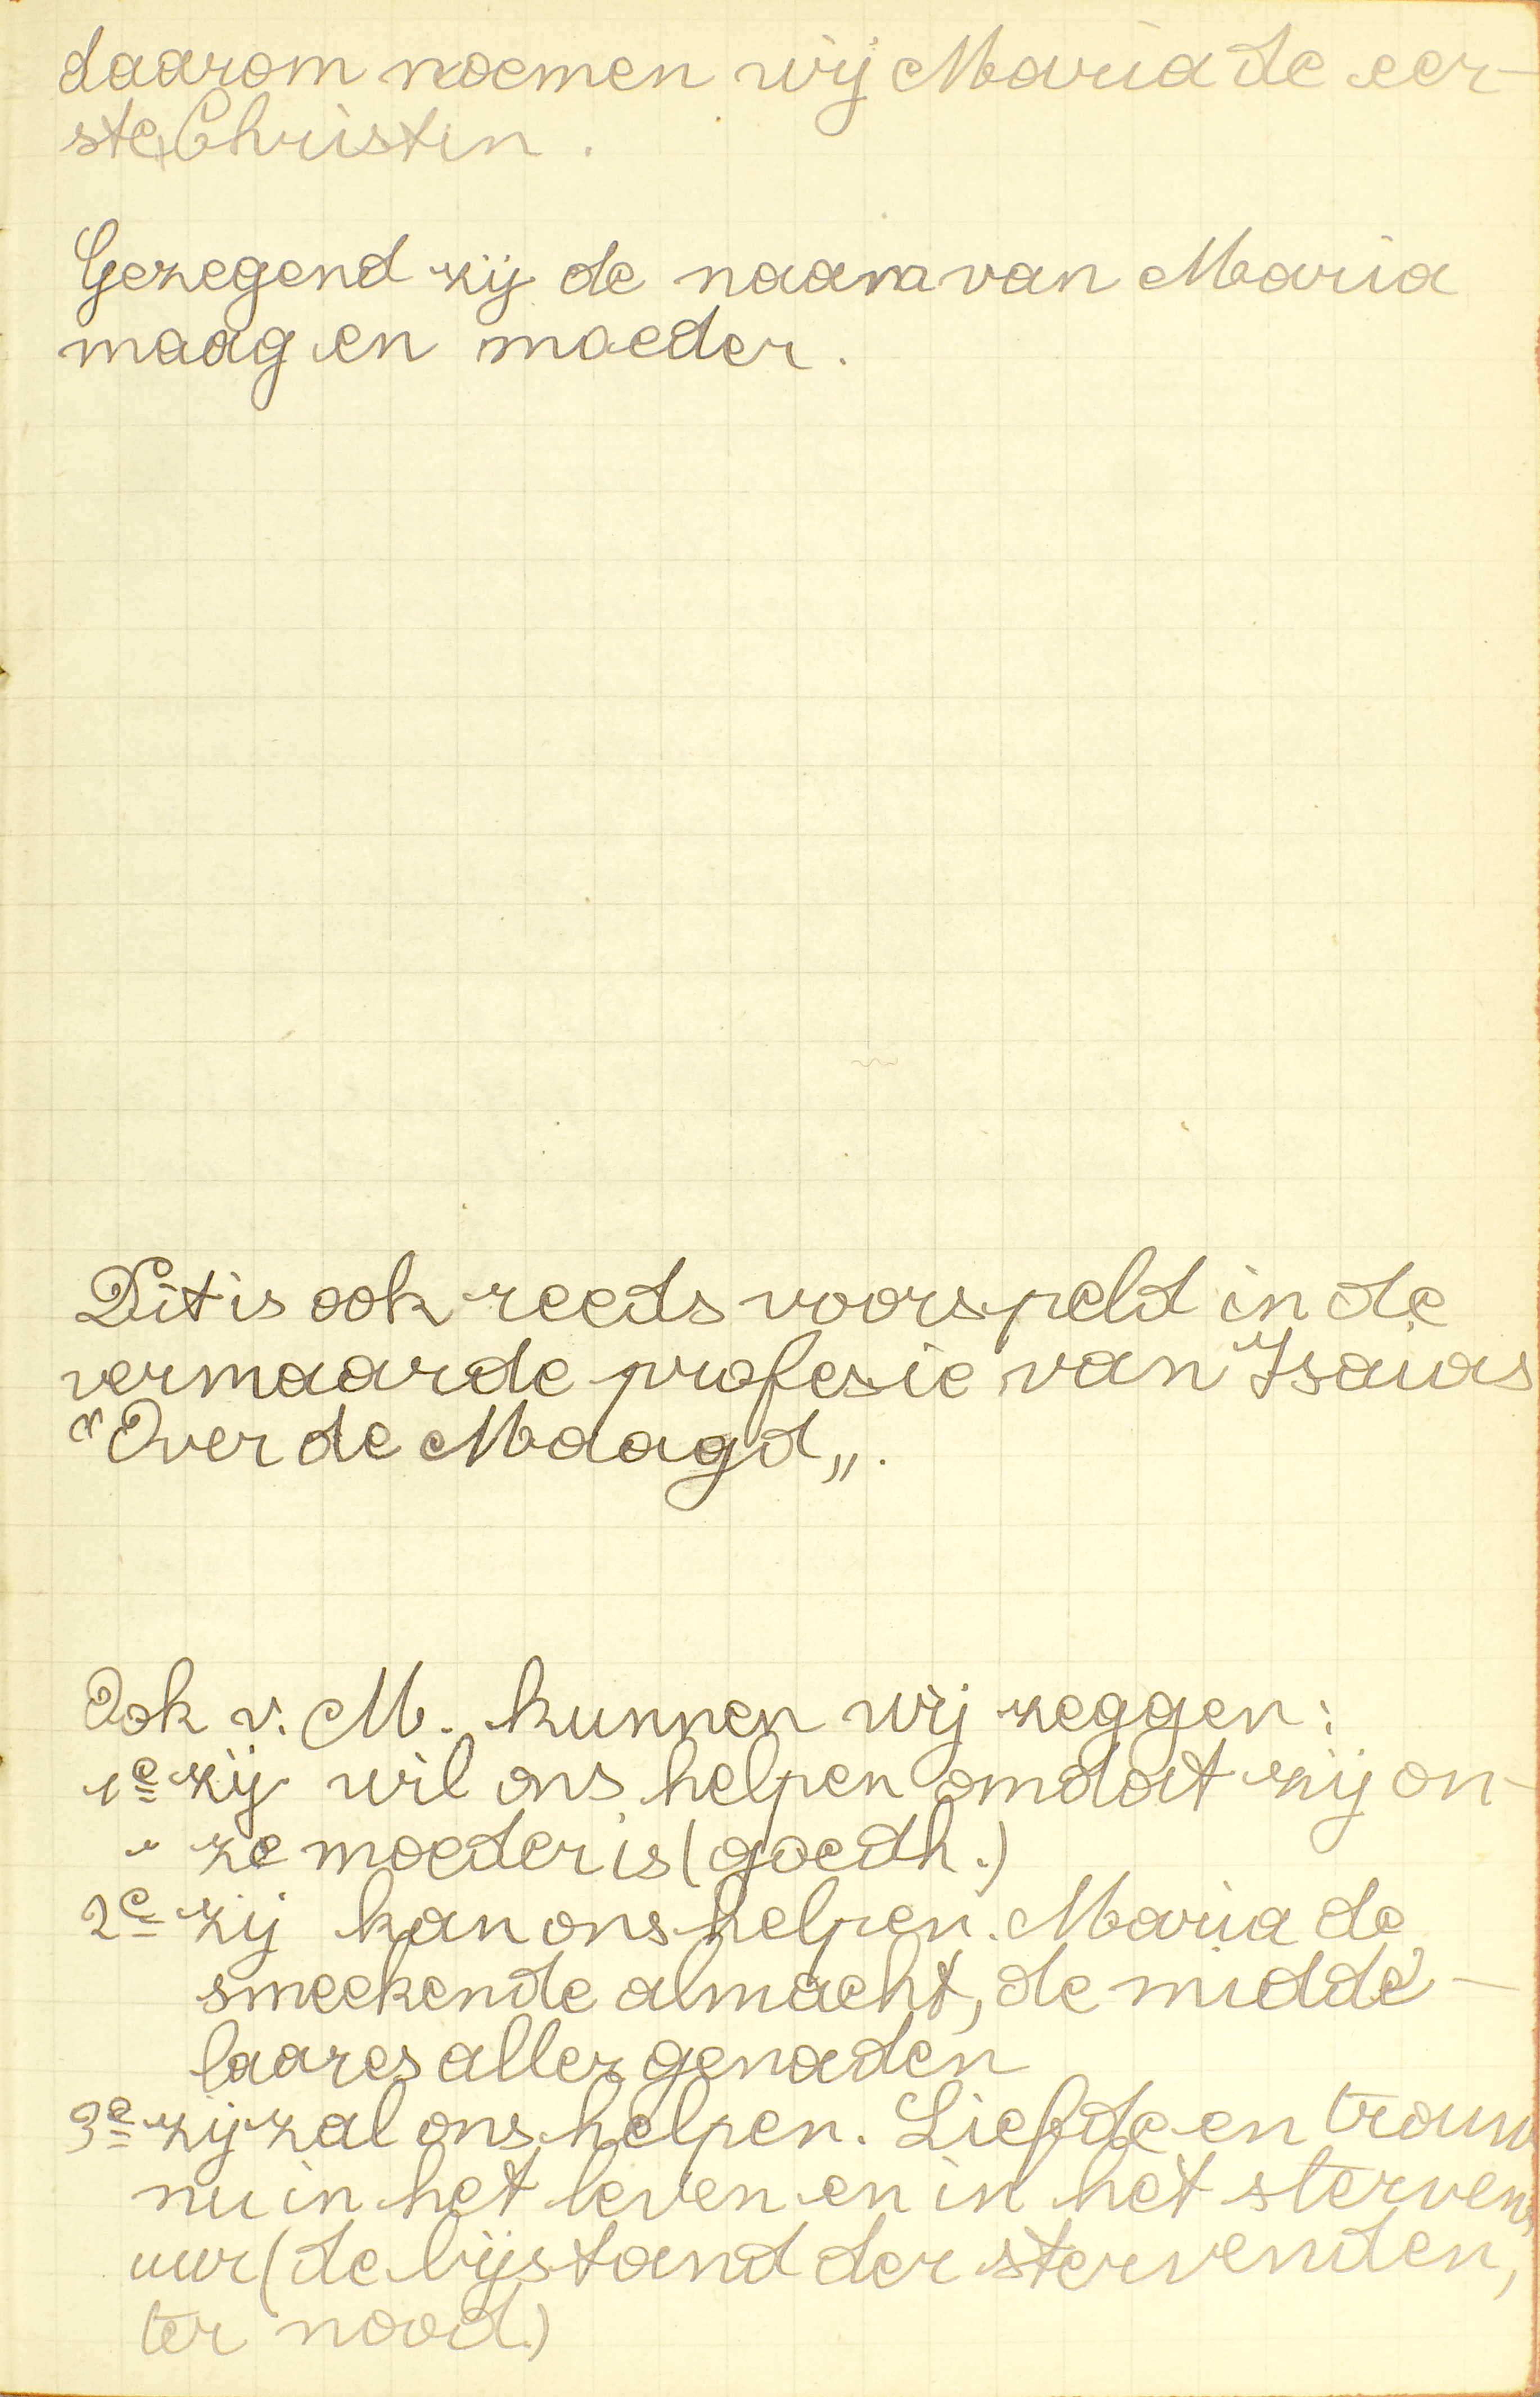 daarom noemen wij Maria de eer-
ste Christin.
Gezegend zij de naam van Maria
maag en moeder.
Dit is ook reeds voorspeld in de
vermaarde profesie van Isaias
"Over de Maagd„.
Ook v. M. kunnen wij zeggen:
1e zij wil ons helpen omdat zij on-
ze moeder is (goedh.)
2e zij kan ons helpen. Maria de
smeekende almacht, de midde-
laares aller genaden
3e zij zal ons helpen. Liefde en trouw
nu in het leven en in het stervens
uur (de bijstand der stervenden,
ter nood.)